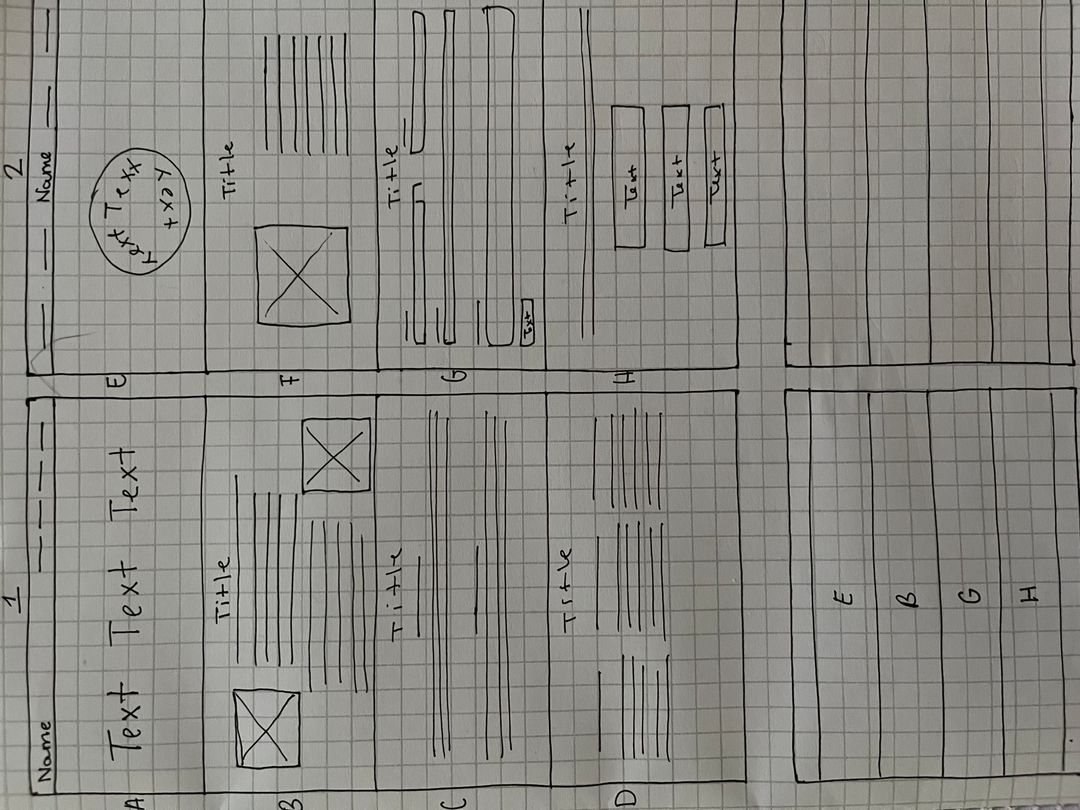 1
Name
A Text Text Text
B Title
C Title
D Title
2
Name
E Text
F Title
G Title
Text
H Title
Text
Text
Text
E
B
G
H